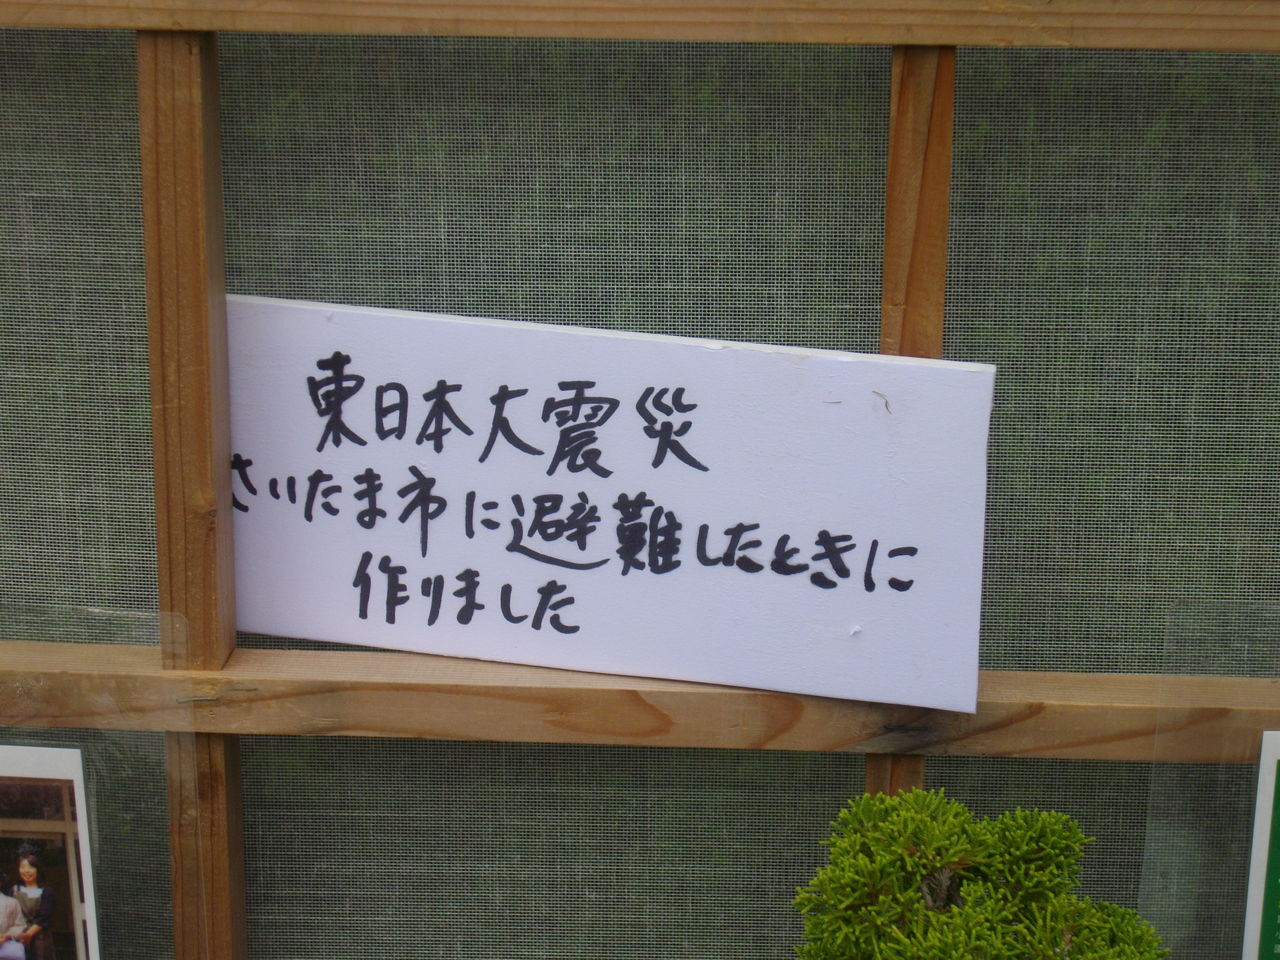 東日本大震災
さいたま市に避難したときに
作りました